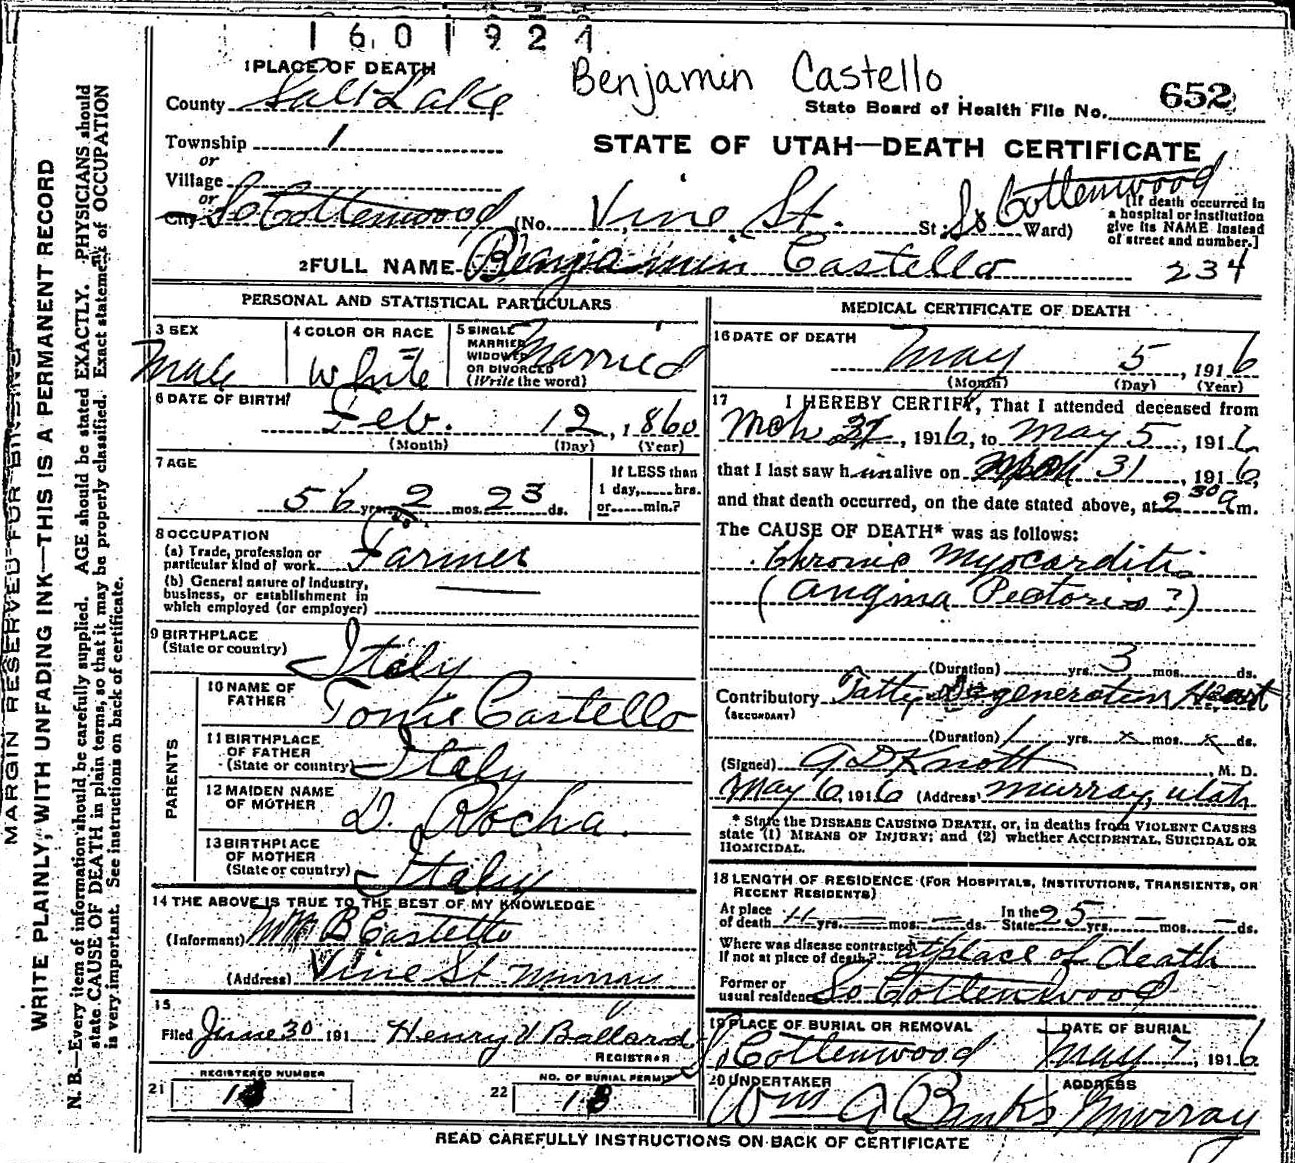 1601924
Benjamin Castello
1 PLACE OF DEATH
County Salt Lake
State Board of Health File No. 652
Township 1
or
Village
or
City So Cottenwood
STATE OF UTAH—DEATH CERTIFICATE
(No. Vine St. St; So Cottenwood Ward)
[If death occurred in
a hospital or institution
give its NAME instead
of street and number.]
2 FULL NAME Benjamin Castello
234
PERSONAL AND STATISTICAL PARTICULARS
3 SEX
Male
4 COLOR OR RACE
White
5 SINGLE
MARRIED
WIDOWED
OR DIVORCED
(Write the word)
Married
6 DATE OF BIRTH
Feb. 12, 1860
(Month) (Day) (Year)
7 AGE
56 yrs. 2 mos. 23 ds.
If LESS than
1 day,......hrs.
or......min.?
8 OCCUPATION
(a) Trade, profession or
particular kind of work Farmer
(b) General nature of industry,
business, or establishment in
which employed (or employer)
9 BIRTHPLACE
(State or country) Italy
PARENTS
10 NAME OF
FATHER Tonie Castello
11 BIRTHPLACE
OF FATHER
(State or country) Italy
12 MAIDEN NAME
OF MOTHER D. Rocha.
13 BIRTHPLACE
OF MOTHER
(State or country) Italy
14 THE ABOVE IS TRUE TO THE BEST OF MY KNOWLEDGE
(Informant) Wm B Castetto
(Address) Vine St Murray
15
Filed June 30 191 Henry V Ballard
REGISTRAR
21
REGISTERED NUMBER
18
22
NO. OF BURIAL PERMIT
18
MEDICAL CERTIFICATE OF DEATH
16 DATE OF DEATH
May 5, 1916
(Month) (Day) (Year)
17 I HEREBY CERTIFY, That I attended deceased from
Mch, 1916, to May 5, 1916
that I last saw him alive on March 31, 1916,
and that death occurred, on the date stated above, at 2 30 a m.
The CAUSE OF DEATH* was as follows:
Chronic Myocarditis
(Angina Pectoris?)
(Duration) yrs. 3 mos. ds.
Contributory Fatty Degeneration Heart
(SECONDARY)
(Duration) 1 yrs. x mos. x ds.
(Signed) A D Knott M. D.
May 6, 1916 (Address) Murray, Utah
* State the DISEASE CAUSING DEATH, or, in deaths from VIOLENT CAUSES
state (1) MEANS OF INJURY; and (2) whether ACCIDENTAL, SUICIDAL OR
HOMICIDAL.
18 LENGTH OF RESIDENCE (FOR HOSPITALS, INSTITUTIONS, TRANSIENTS, OR
RECENT RESIDENTS)
At place
of death 11 yrs. — mos. — ds.
In the
State 25 yrs. — mos. — ds.
Where was disease contracted,
If not at place of death? at place of death
Former or
usual residence So Cottenwood
19 PLACE OF BURIAL OR REMOVAL
S. Cottenwood
DATE OF BURIAL
May 7, 1916
20 UNDERTAKER
Wm A Banks
ADDRESS
Murray
READ CAREFULLY INSTRUCTIONS ON BACK OF CERTIFICATE
MARGIN RESERVED FOR BINDING
WRITE PLAINLY, WITH UNFADING INK—THIS IS A PERMANENT RECORD
N. B.—Every item of information should be carefully supplied. AGE should be stated EXACTLY. PHYSICIANS should
state CAUSE OF DEATH in plain terms, so that it may be properly classified. Exact statement of OCCUPATION
is very important. See instructions on back of certificate.